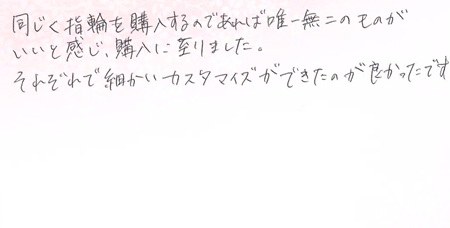 同じく指輪を購入するのであれば唯一無二のものが
いいと感じ、購入に至りました。
それぞれで細かいカスタマイズができたのが良かったです